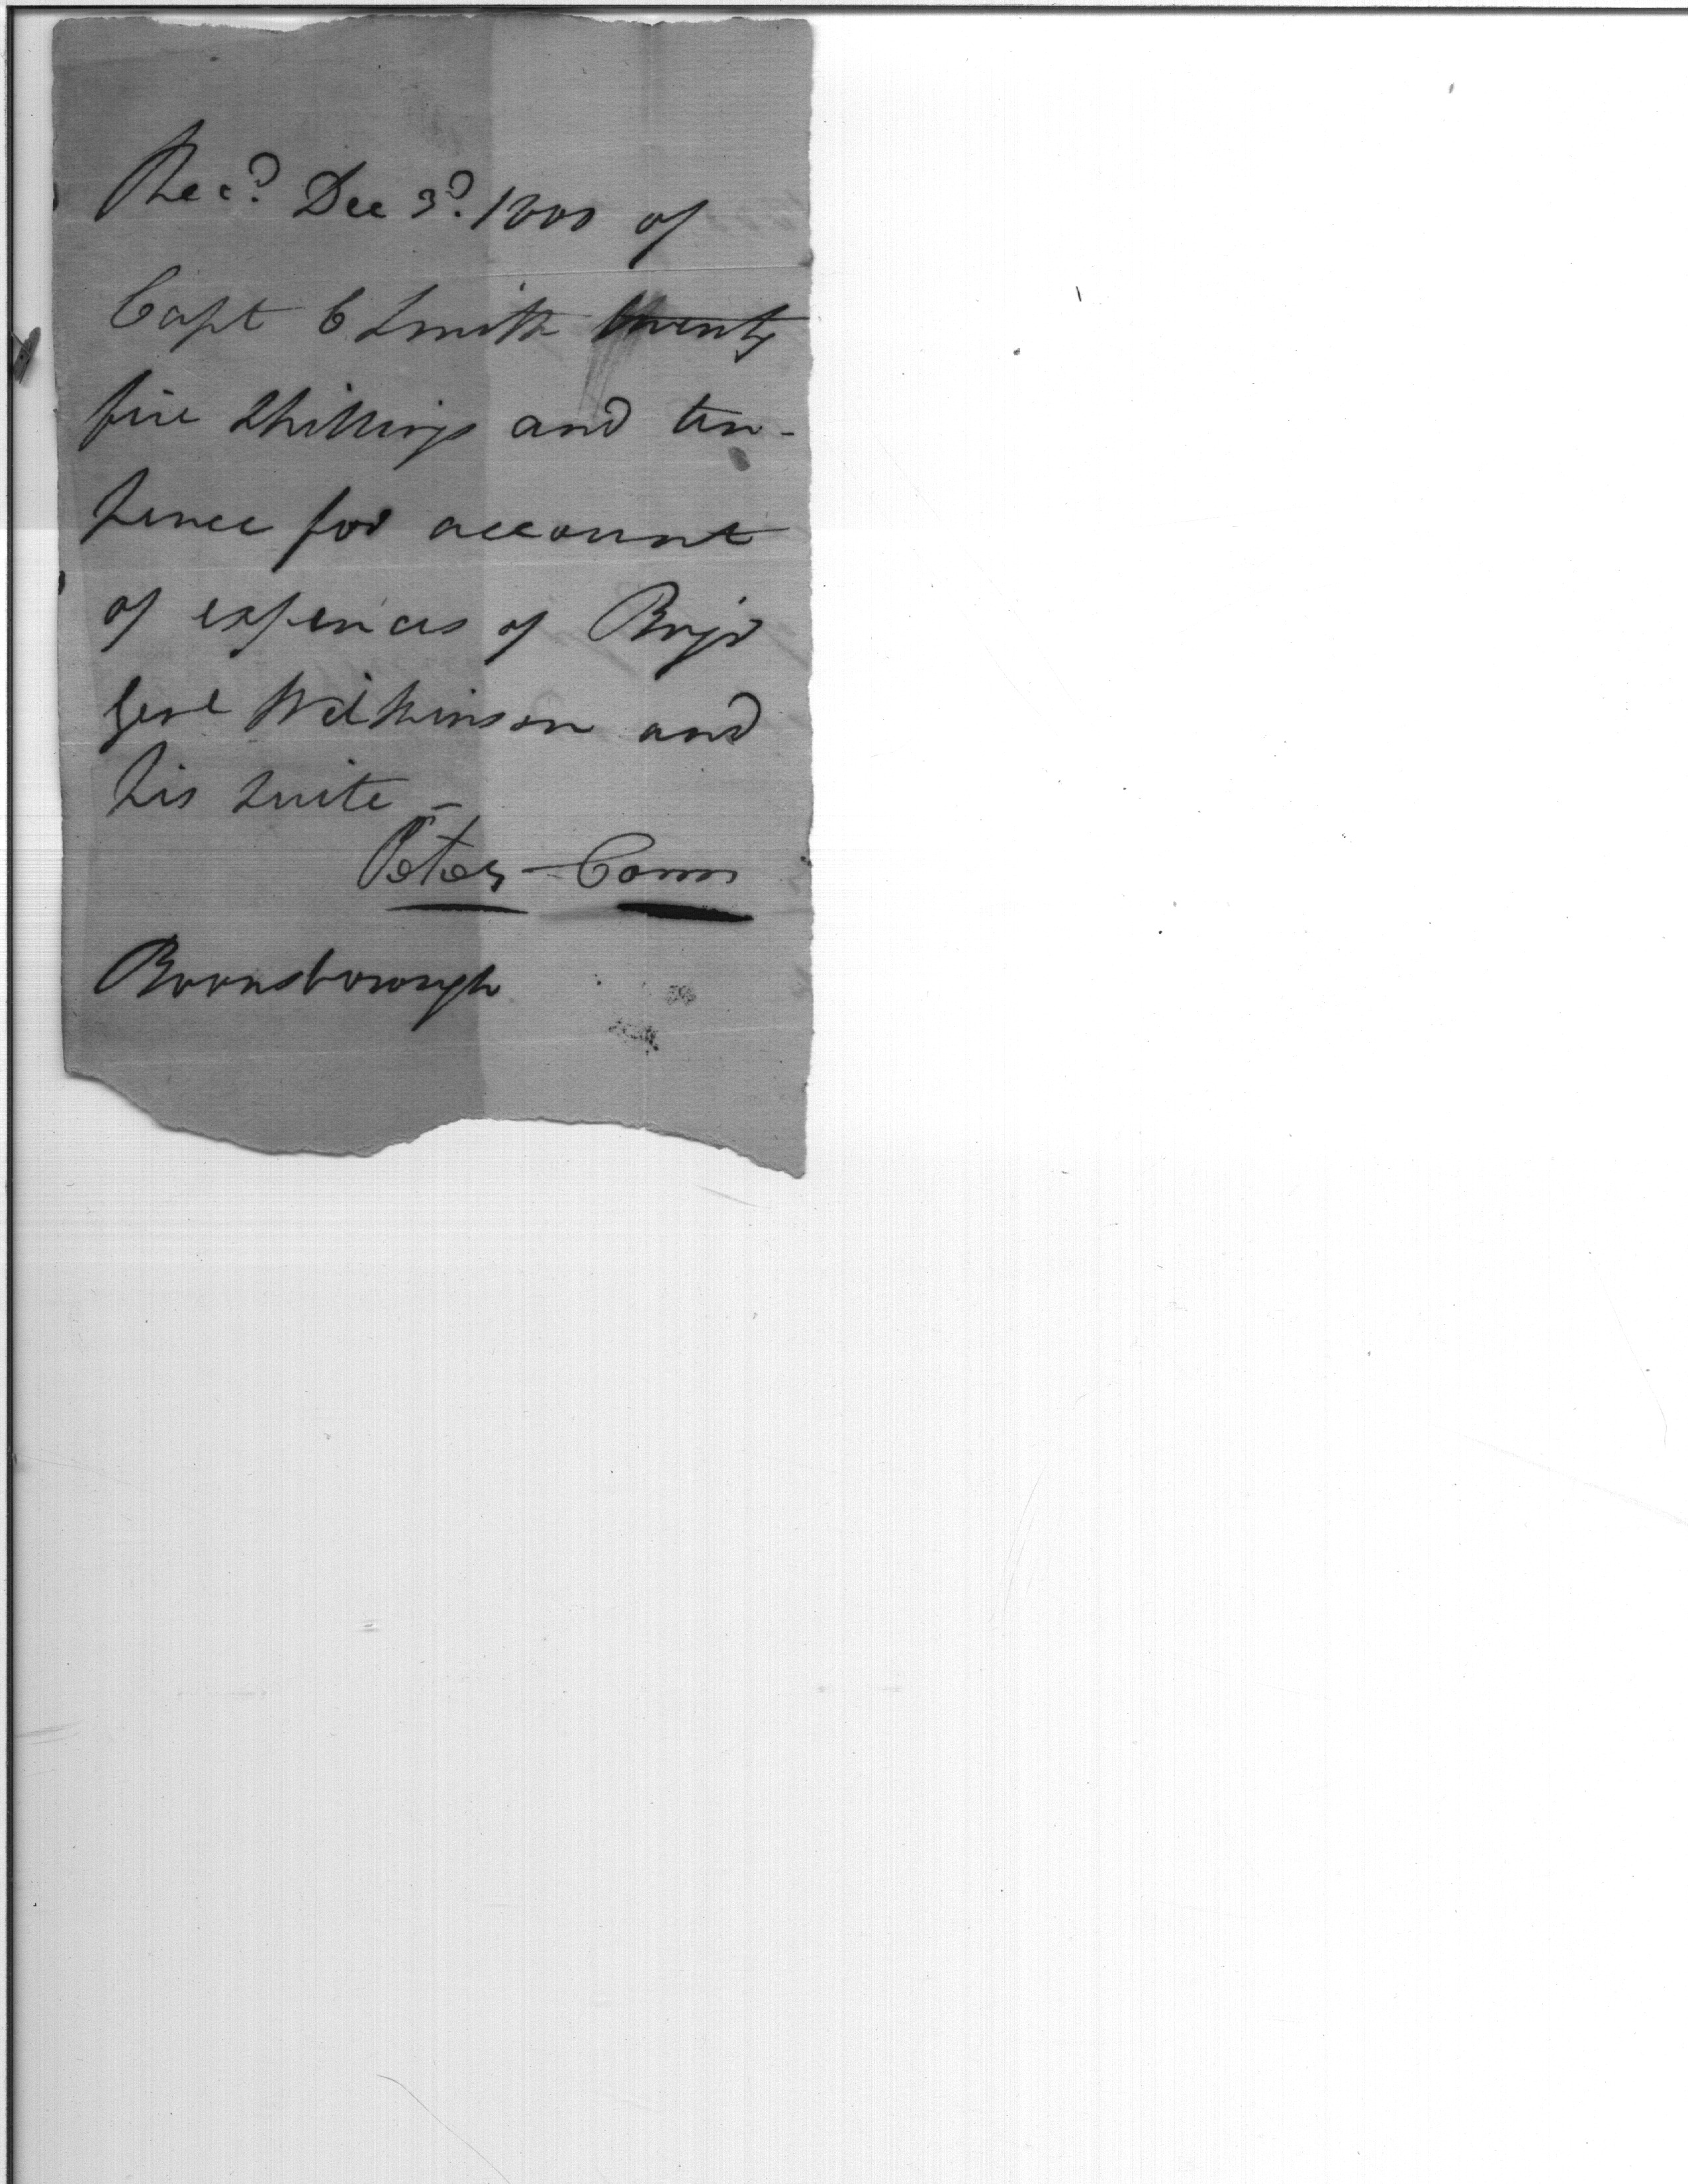 Rec.d Dec 3.d 1800 of
Capt C Smith twenty
five shillings and ten-
pence for account
of expences of Brigd
Genl Wilkinson and
his suite -
Peter Conn
Boonsborough